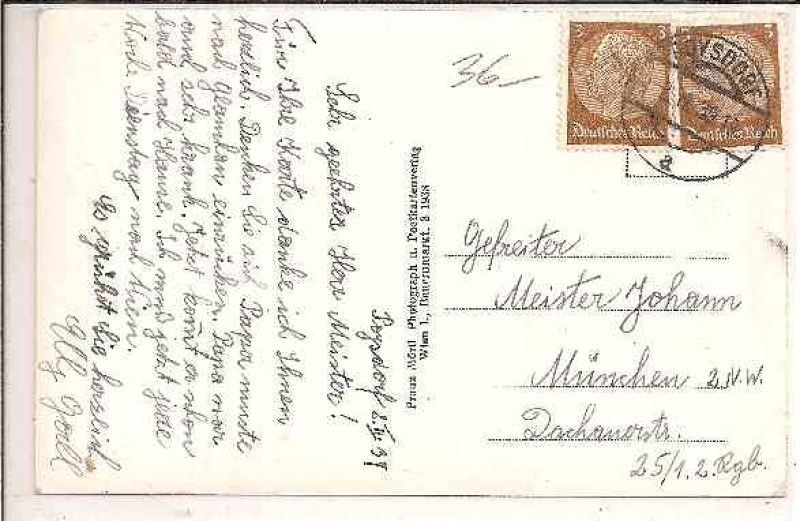 Pogsdorf 8.V.39
Sehr geehrter Herr Meister!
Für Ihre Karte danke ich Ihnen
herzlich. Denken Sie sich Papa musste
nach Glambau einrücken. Papa war
auch sehr krank. Jetzt kommt er schon
bald nach Hause. Ich muß jetzt jede
Woche Dienstag nach Wien.
Es grüßt Sie herzlich
Elly
36-
3 3
Deutsches Reich Deutsches Reich
a
Franz Mörtl Photograph u. Postkartenverlag
Wien I., Bauernmarkt. 3 1938
Gefreiter
Meister Johann
München 2 N.W.
Dachauerstr.
25/1.2.Rgb.